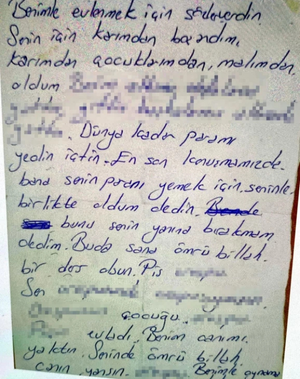 Benimle evlenmek için söz verdin
Senin için karımdan boşandım.
Karımdan çocuklarımdan, malımdan,
oldum
Dünya kadar paramı
yedin içtin. En son konuşmamızda.
bana senin paranı yemek için. seninle
birlikte oldum dedin.
bunu senin yanına bırakmam
dedim. Buda sana ömrü billah.
bir ders olsun. Pis
Sen
çocuğu
evladı. Benim canımı.
yaktın. Seninde ömrü billah
canın yansın. Benimle oynama